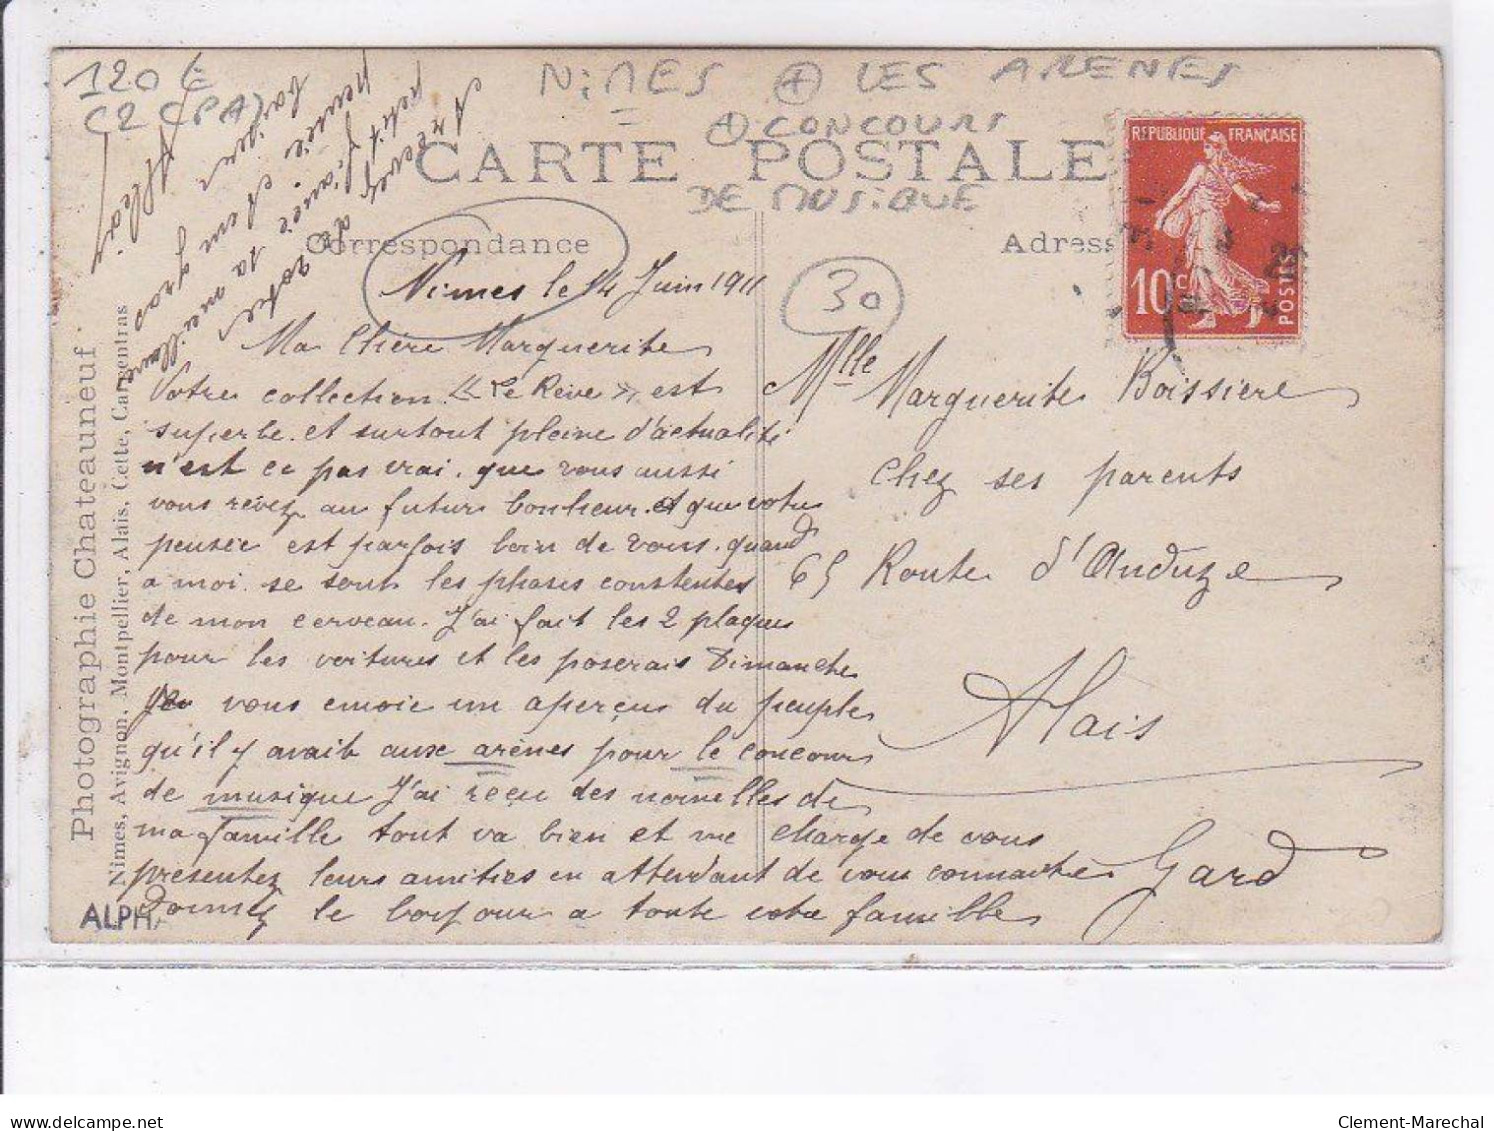 120 €
C2 (PA)
NiMES + LES ARENES
+ CONCOURS
DE MUSiQUE
CARTE POSTALE
Correspondance
Adress
REPUBLIQUE FRANÇAISE
10 c.
POSTES
30
Nimes le 14 Juin 1911
Ma Chère Marguerite
Votre collection « Le Rêve » est
superbe et surtout pleine d'actualité
n'est ce pas vrai, que vous aussi
vous rêvez au futur bonheur. et que votre
pensée est parfois loin de vous, quand
a moi se sont les phases constentes
de mon cerveau. J'ai fait les 2 plaques
pour les voitures et les poserais Dimanche
Je vous envoie un aperçus du peuple
qu'il y avait aux arènes pour le concours
de musique J'ai reçu des nouvelles de
ma famille tout va bien et me charge de vous
présentez leurs amitiés en attendant de vous connaitre
Donnez le bonjour a toute votre famille
Recevez de votre
petit fiancé sa meilleure
pensée et un gros
baiser
Mlle Marguerite Boissiere
Chez ses parents
65 Route d'Anduze
Alais
Gard
Photographie Chateauneuf
Nimes, Avignon, Montpellier, Alais, Cette, Carpentras
ALPH.
Clement-Marechal
www.delcampe.net